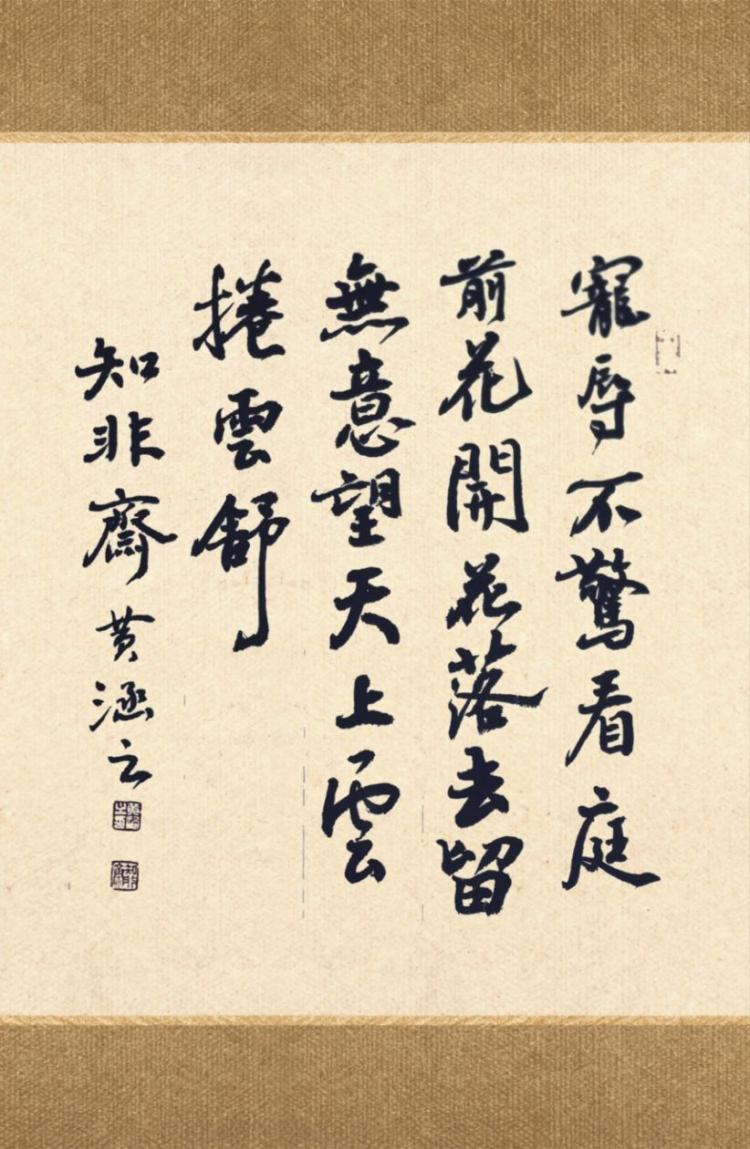 寵辱不驚看庭
前花開花落去留
無意望天上雲
捲雲舒
知非齋黃涵之